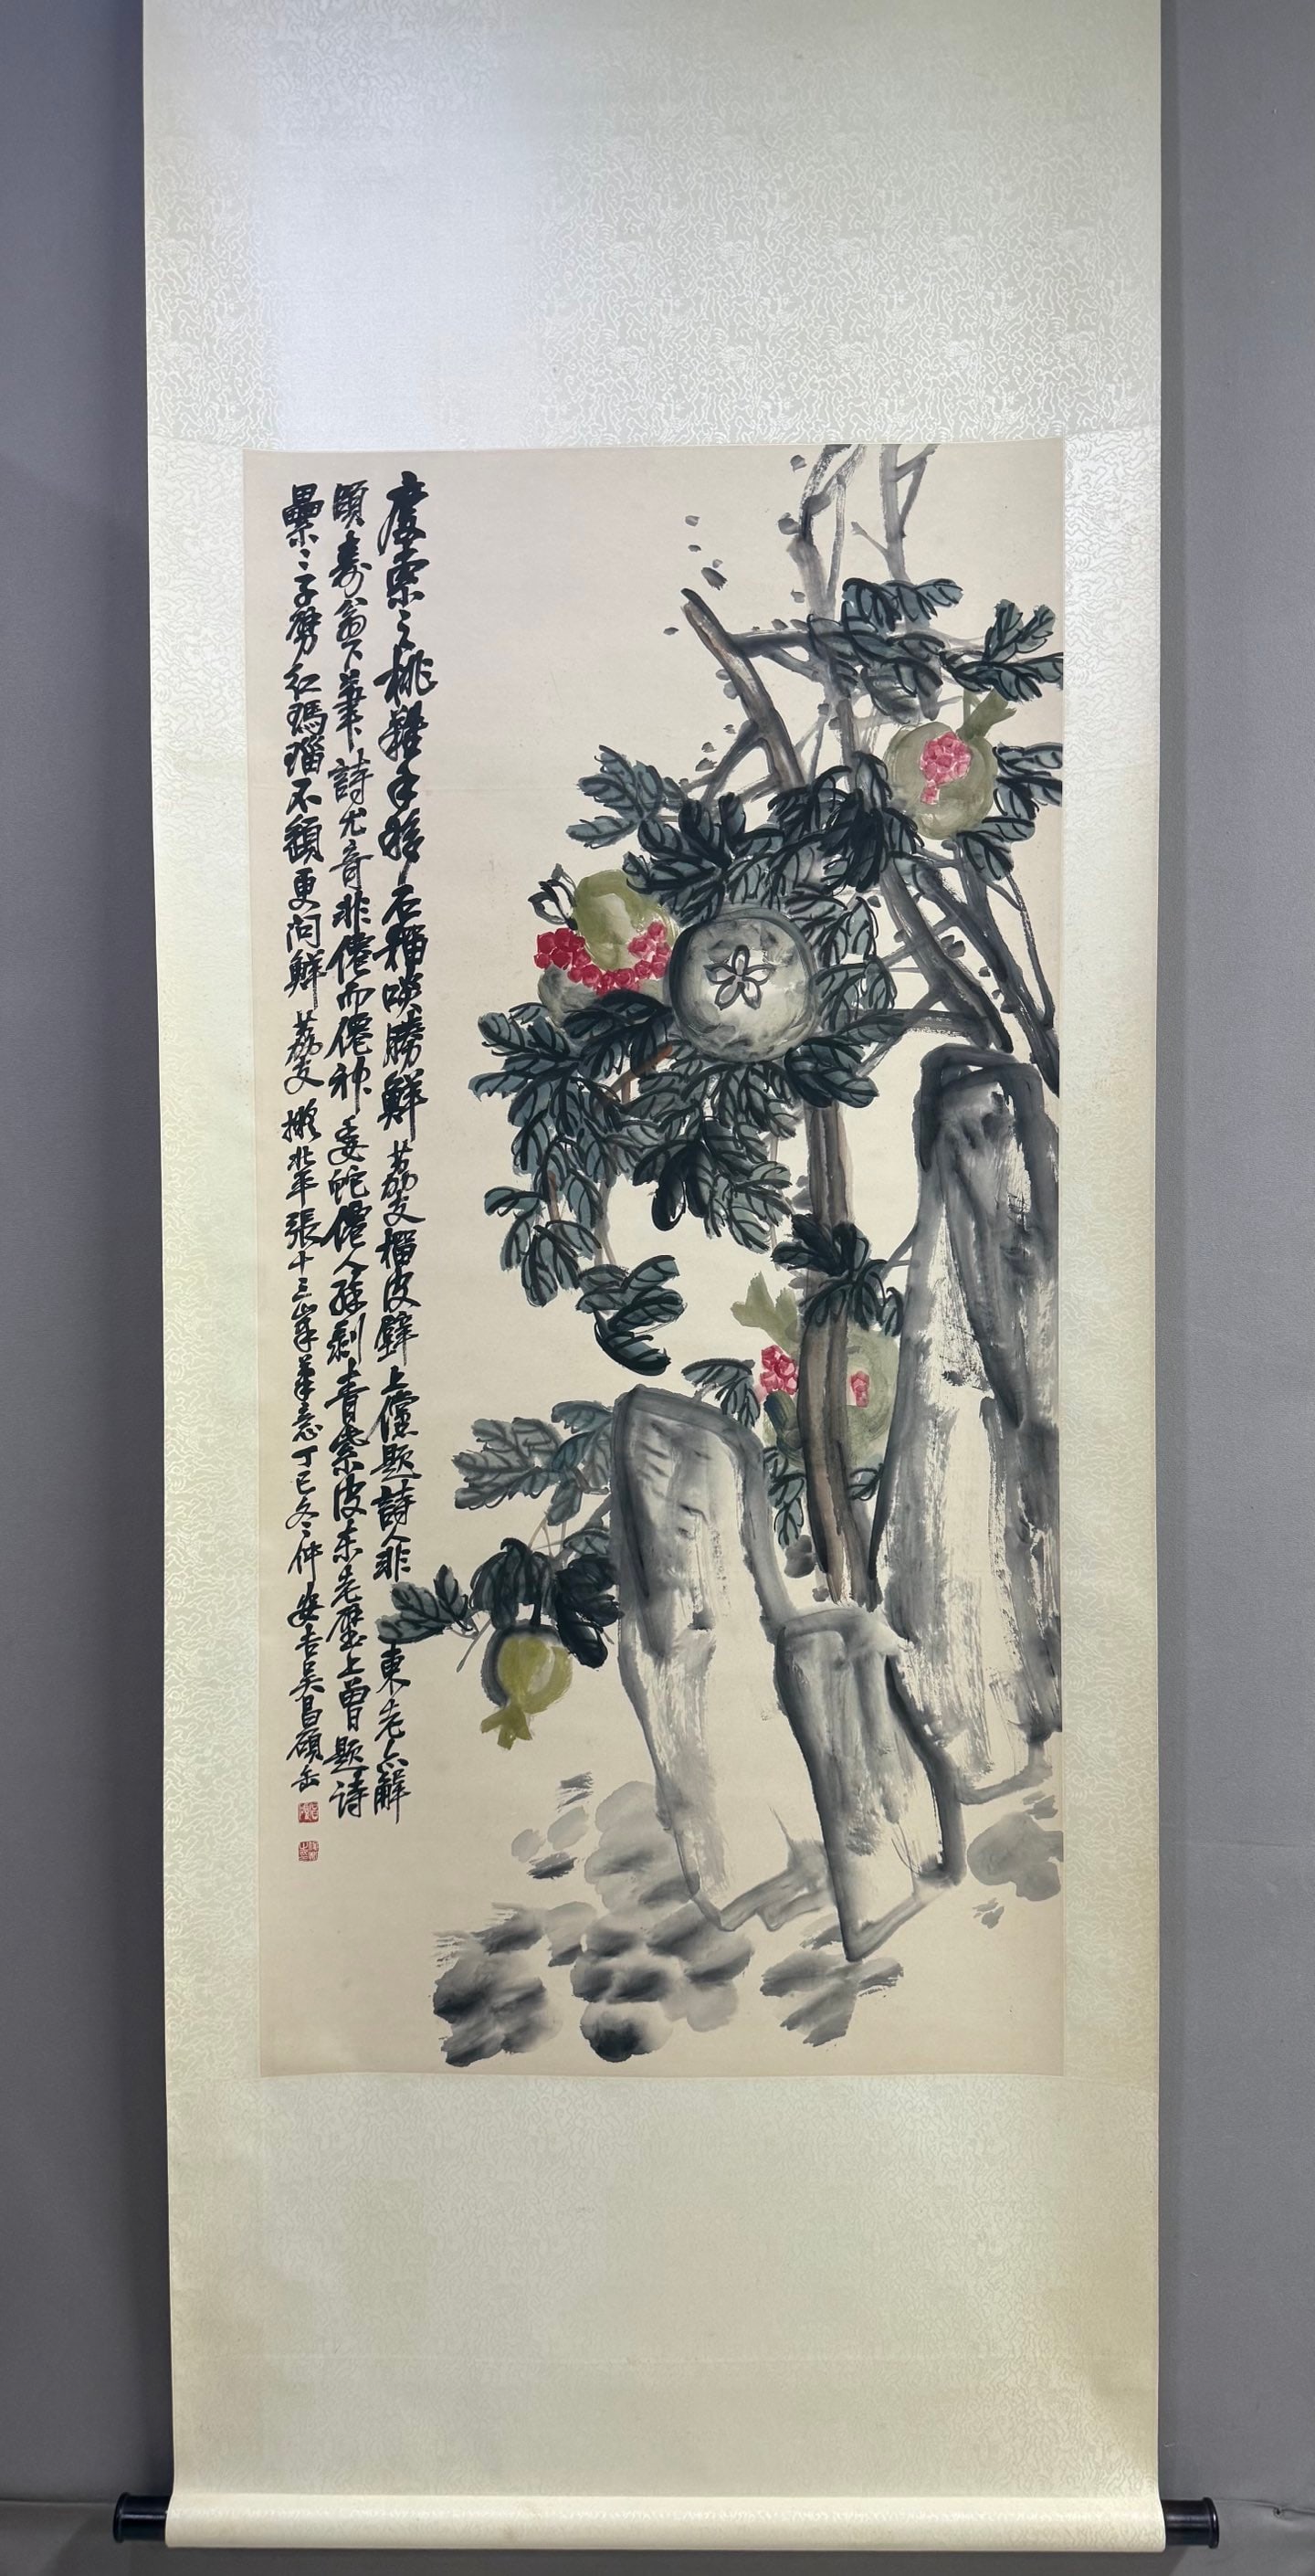 度索之桃難手移石榴啖勝鮮荔支榴皮壁上儻題詩人非東老亦解
頤壽翁下筆詩尤奇非僊而僊神委蛇僊人孫剝青紫皮東老壁上曾題詩
纍〻子劈紅瑪瑙不願更問鮮荔支擬北平張十三峯筆意丁巳冬仲安吉吳昌碩缶